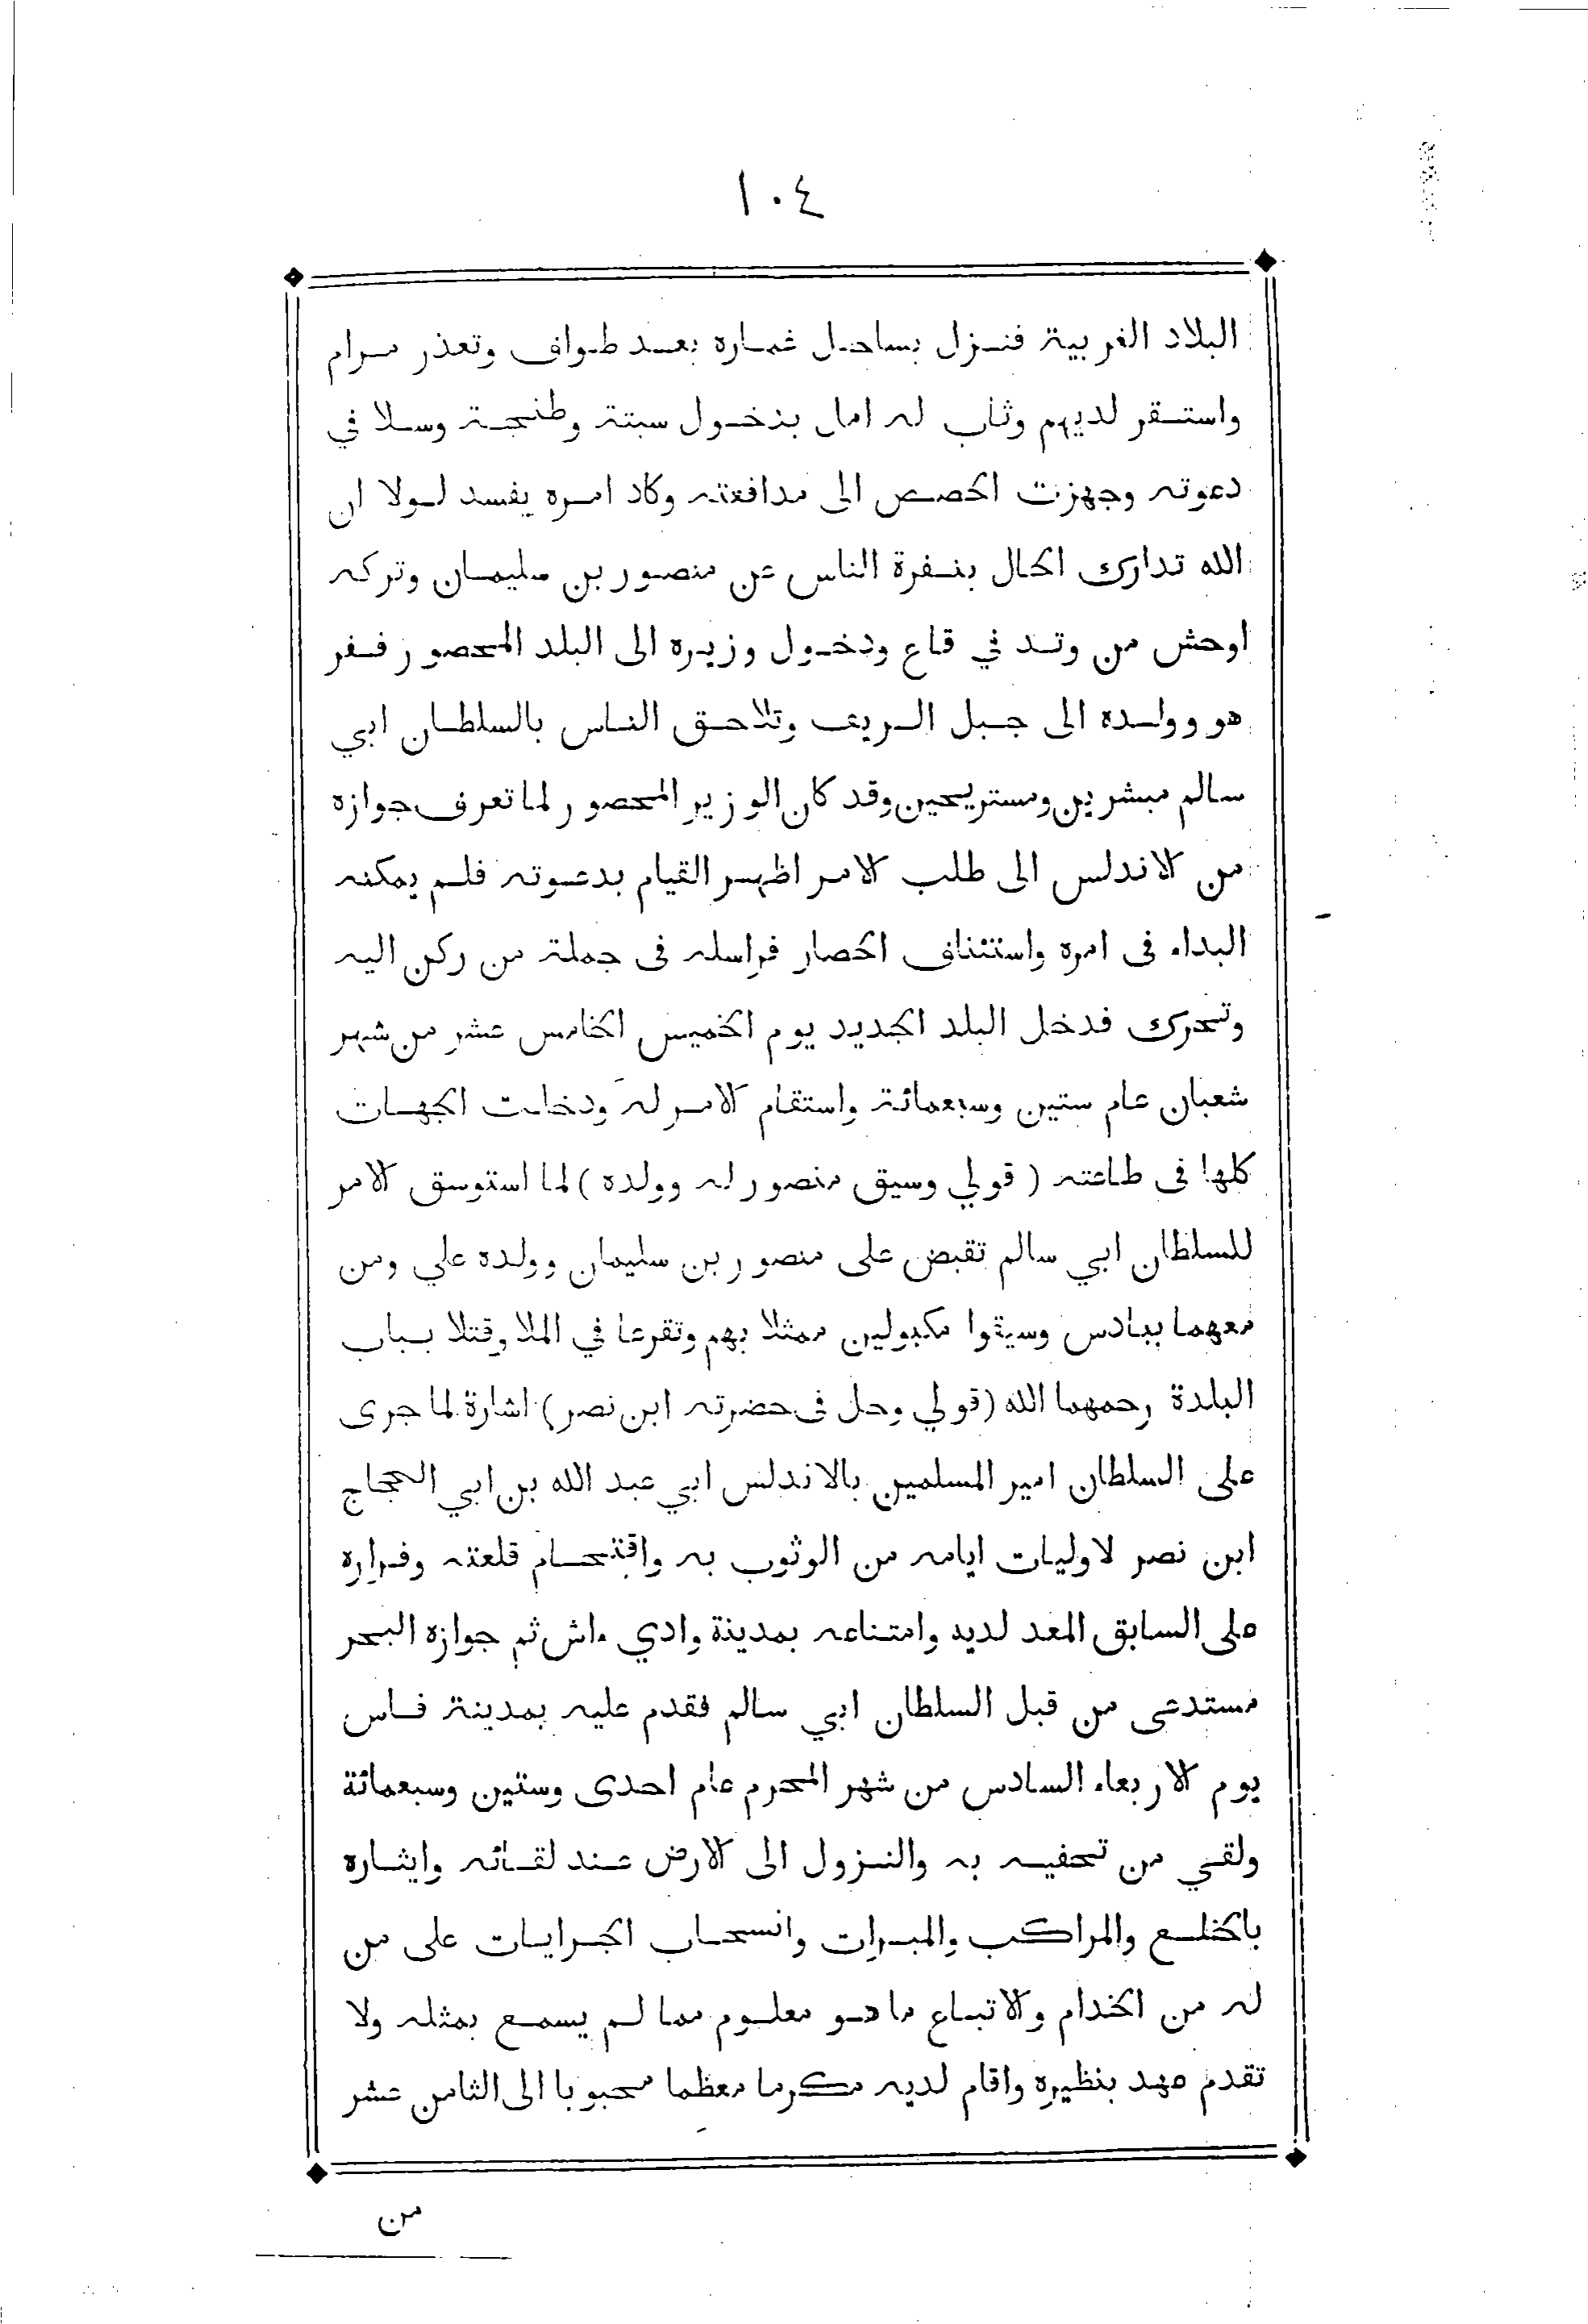 ١٠٤
البلاد الغربية فنزل بساحل غماره بعد طواف وتعذر مرام
واستقر لديهم وثاب له امل بدخول سبتة وطنجة وسلا في
دعوته وجهزت الحصص الى مدافعته وكاد امره يفسد لولا ان
الله تدارك الحال بنفرة الناس عن منصور بن سليمان وتركه
اوحش من وتد في قاع ودخول وزيره الى البلد المحصور ففر
هو وولده الى جبل الريف وتلاحق الناس بالسلطان ابي
سالم مبشرين ومستريحين وقد كان الوزير المحصور لما تعرف جوازه
من الاندلس الى طلب الامر اظهر القيام بدعوته فلم يمكنه
البداء فى امره واستئناف الحصار فراسله فى جملة من ركن اليه
وتحرك فدخل البلد الجديد يوم الخميس الخامس عشر من شهر
شعبان عام ستين وسبعمائة واستقام الامر له ودخلت الجهات
كلها فى طاعته (قولي وسيق منصور له وولده) لما استوسق الامر
للسلطان ابي سالم تقبض على منصور بن سليمان وولده علي ومن
معهما ببادس وسيقوا مكبولين ممثلا بهم وتقرعا في الملا وقتلا بباب
البلدة رحمهما الله (قولي وحل فى حضرته ابن نصر) اشارة لما جرى
على السلطان امير المسلمين بالاندلس ابي عبد الله بن ابي الحجاج
ابن نصر لاوليات ايامه من الوثوب به واقتحام قلعته وفراره
على السابق المعد لديه وامتناعه بمدينة وادي ءاش ثم جوازه البحر
مستدعى من قبل السلطان ابي سالم فقدم عليه بمدينة فاس
يوم الاربعاء السادس من شهر المحرم عام احدى وستين وسبعمائة
ولقي من تحفيه به والنزول الى الارض عند لقائه وايثاره
بالخلع والمراكب والمبرات وانسحاب الجرايات على من
له من الخدام والاتباع ما هو معلوم مما لم يسمع بمثله ولا
تقدم عهد بنظيره واقام لديه مكرما معظما محبوبا الى الثامن عشر
من